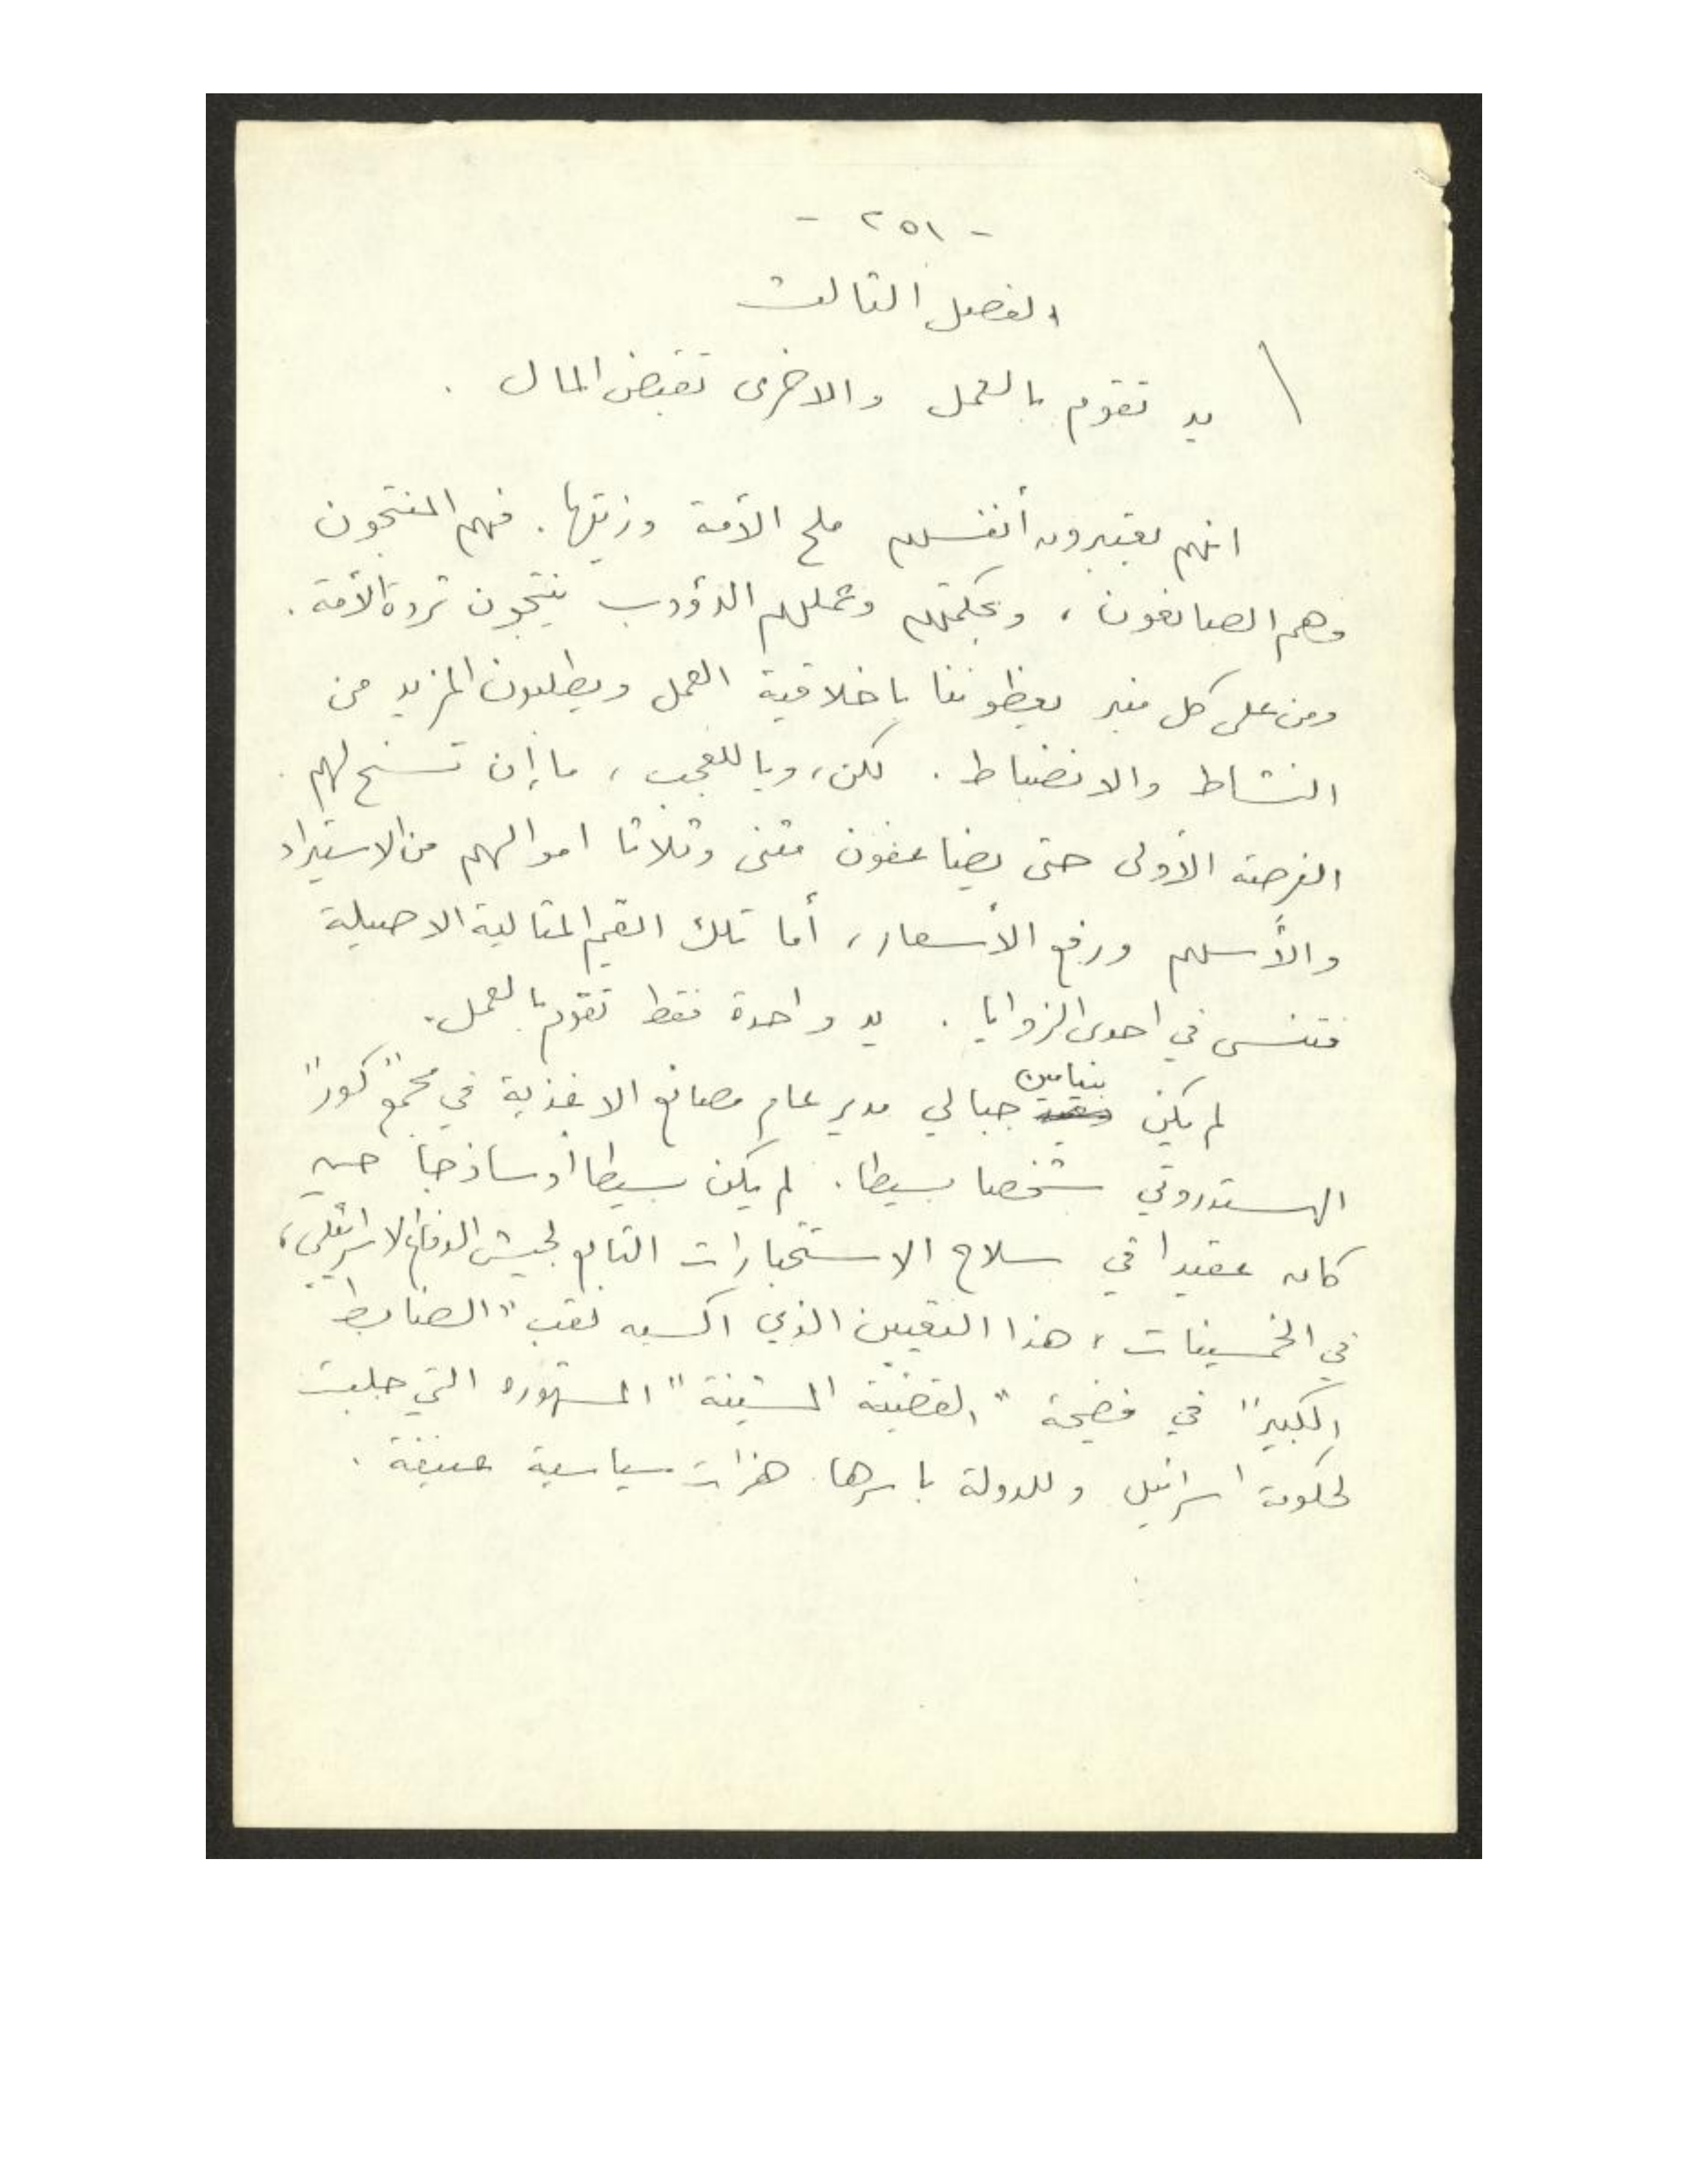 - ٢٥١ -
الفصل الثالث
يد تقوم بالعمل والاخرى تقبض المال .
انهم يعتبرون أنفسهم ملح الأمة وزيتها . فهم المنتجون
وهم الصانعون ، وبحكمتهم وعملهم الدؤوب ينتجون ثروة الأمة .
ومن على كل منبر يعظوننا باخلاقية العمل ويطلبون المزيد من
النشاط والانضباط . لكن ، ويا للعجب ، ما إن تسنح لهم
الفرصة الأولى حتى يضاعفون مثنى وثلاثا اموالهم من الاستيراد
والأسهم ورفع الأسعار ، أما تلك القيم المثالية الاصيلة
فتنسى في احدى الزوايا . يد واحدة فقط تقوم بالعمل .
لم يكن بنيامين جبالي مدير عام مصانع الاغذية في مجمع "كور"
الهستدروتي شخصا بسيطا . لم يكن بسيطا أو ساذجا حين
كان عقيدا في سلاح الاستخبارات التابع لجيش الدفاع الاسرائيلي ،
في الخمسينات ، هذا التعيين الذي اكسبه لقب "الضابط
الكبير" في فضيحة "القضية المشينة" المشهوره التي جلبت
لحكومة اسرائيل وللدولة باسرها هزات سياسية عنيفة .